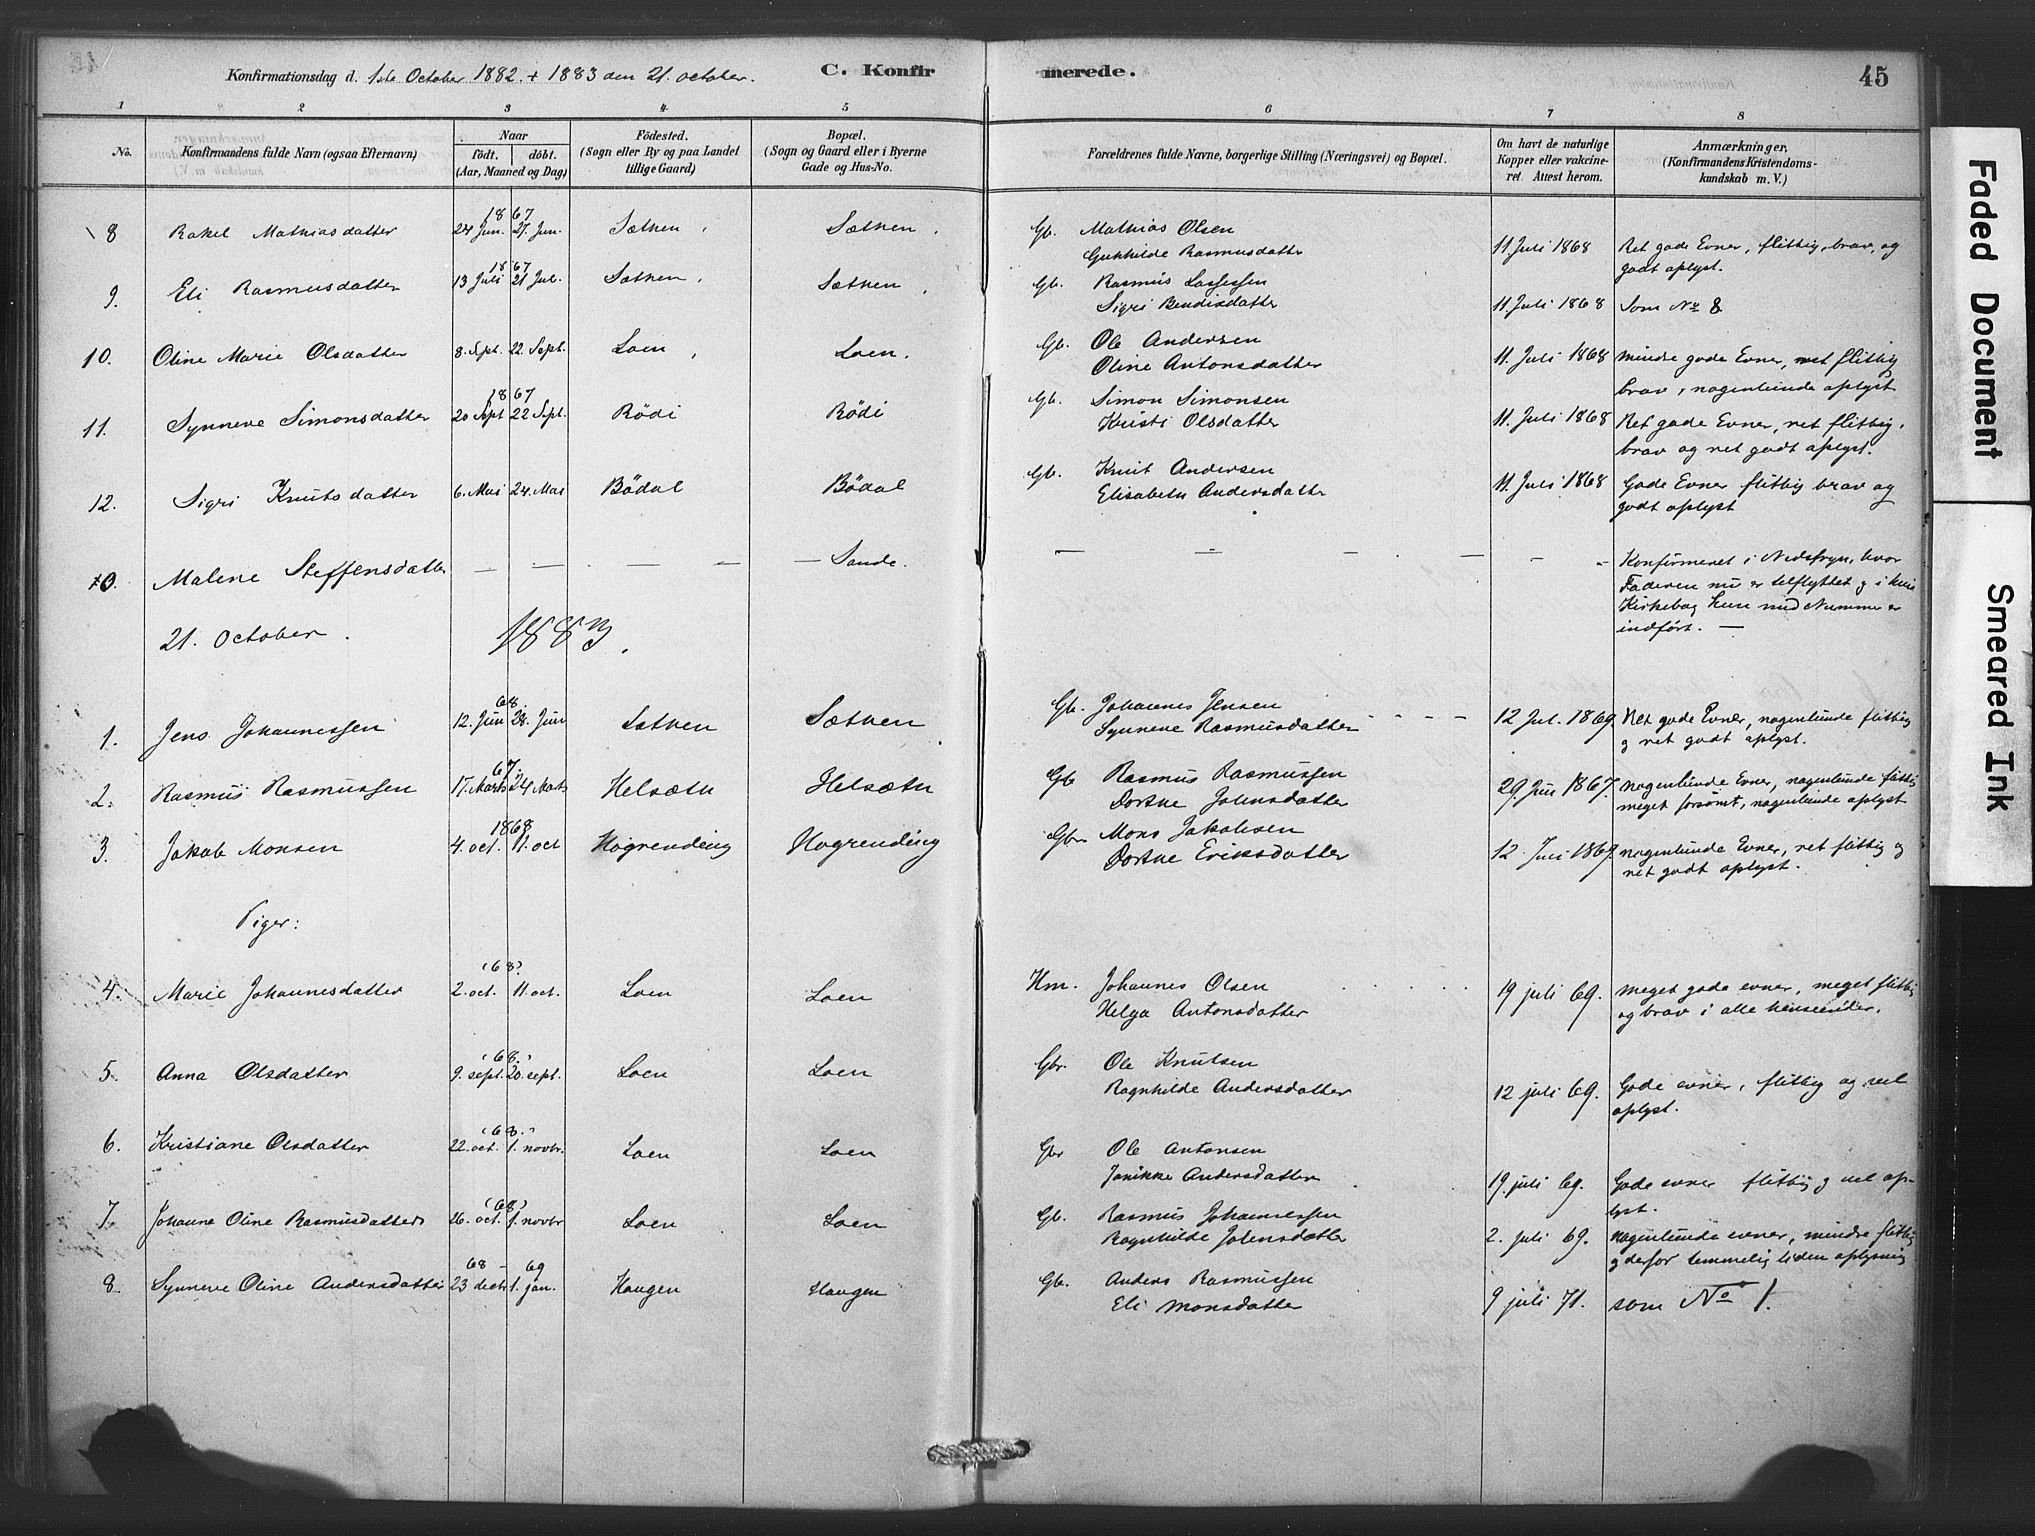 Konfirmationsdag d. 1ste October 1882. + 1883 den 21. october. C. Konfirmerede. 45
1 2 3 4 5 6 7 8
No. Konfirmandens fulde Navn (ogsaa Efternavn) Naar født. døbt. (Aar, Maaned og Dag) Fødested. (Sogn eller By og paa Landet tillige Gaard) Bopæl. (Sogn og Gaard eller i Byerne Gade og Hus-No. Forældrenes fulde Navne, borgerlige Stilling (Næringsvei) og Bopæl. Om havt de naturlige Kopper eller vakcineret. Attest herom. Anmærkninger, (Konfirmandens Kristendomskundskab m. V.)
1867
8 Rakel Mathiasdatter 24 Jun. 27. Jun. Sætren Sætren Gb. Mathias Olsen
Gunhilde Rasmusdatter 11. Juli 1868 Ret gode Evner, flittig, brav, og
godt oplyst.
1867
9. Eli Rasmusdatter 13 Juli 21 Jul. Sætren Sætren Gb. Rasmus Lassesen
Sigri Bendixdatter 11. Juli 1868 Som No 8
10. Oline Marie Olsdatter 8. Sept. 22. Sept. Loen Loen. Gb. Ole Andersen
Oline Antonsdatter 11. Juli 1868 mindre gode Evner, ret flittig
brav, nogenlunde oplyst
1867
11. Synneve Simonsdatter 20 Sept 22 Sept. Rødi Rødi Gb. Simon Simonsen
Kristi Olsdatter 11. Juli 1868 Ret gode Evner, ret flittig,
brav og ret godt oplyst.
12. Sigri Knutsdatter 6. Mai 24. Mai Bødal Bødal Gb. Knut Andersen
Elisabeth Andersdatter 11. Juli 1868 Gode Evner flittig brav og
godt oplyst
0. Malene Steffensdatter — — — — — — Sande. — — — — — — Konfirmeret i Nedstryn, hvor
Faderen nu er tilflyttet og i hvis
Kirkebog hun med Nummer er
indført. —
21. October. 1883.
68.
1. Jens Johannessen 12. Juni 28. Juni Sætren Sætren Gb. Johannes Jensen
Synneve Rasmusdatter 12 Jul. 1869. Ret gode Evner, nogenlunde flittig
og ret godt oplyst.
67.
2. Rasmus Rasmussen 17. Marts 24 Marts Helsæth Helsæth Gb Rasmus Rasmussen
Dorthe Johnsdatter 29. Juni 1867. nogenlunde Evner, nogenlunde flittig
meget forsømt, nogenlunde oplyst
1868
3. Jakob Monsen 4. oct. 11. oct Hogrending Hogrending Gbr Mons Jakobsen
Dorthe Eriksdatter 12 Juli 1869. nogenlunde Evner, ret flittig og
ret godt oplyst.
Piger:
(68)
4. Marie Johannesdatter 2. oct. 11. oct. Loen Loen Hm. Johannes Olsen
Helga Antonsdatter 19 juli 69. meget gode evner, meget flittig
og brav i alle henseender.
(68.)
5. Anna Olsdatter 9. sept. 20. sept. Loen Loen Gbr. Ole Knutsen
Ragnhilde Andersdatter 12 juli 69. Gode evner, flittig og vel
oplyst.
(68.)
6. Kristiane Olsdatter 22. oct. 1. novbr. Loen Loen Gbr Ole Antonsen
Janikke Andersdatter 19. juli 69. Gode evner flittig og vel op-
lyst.
(68)
7. Johanne Oline Rasmusdatter 26. oct. 1. novbr Loen Loen Gb. Rasmus Johannessen
Ragnhilde Johnsdatter 2. juli 69. nogenlunde evner, mindre flittig
og derfor temmelig liden oplysning
68 - 69
8. Synneve Oline Andersdatter 23 decbr 1. jan. Haugen Haugen Gb. Anders Rasmussen
Eli Monsdatter 9 juli 71. som No 1.
Faded Document
Smeared Ink